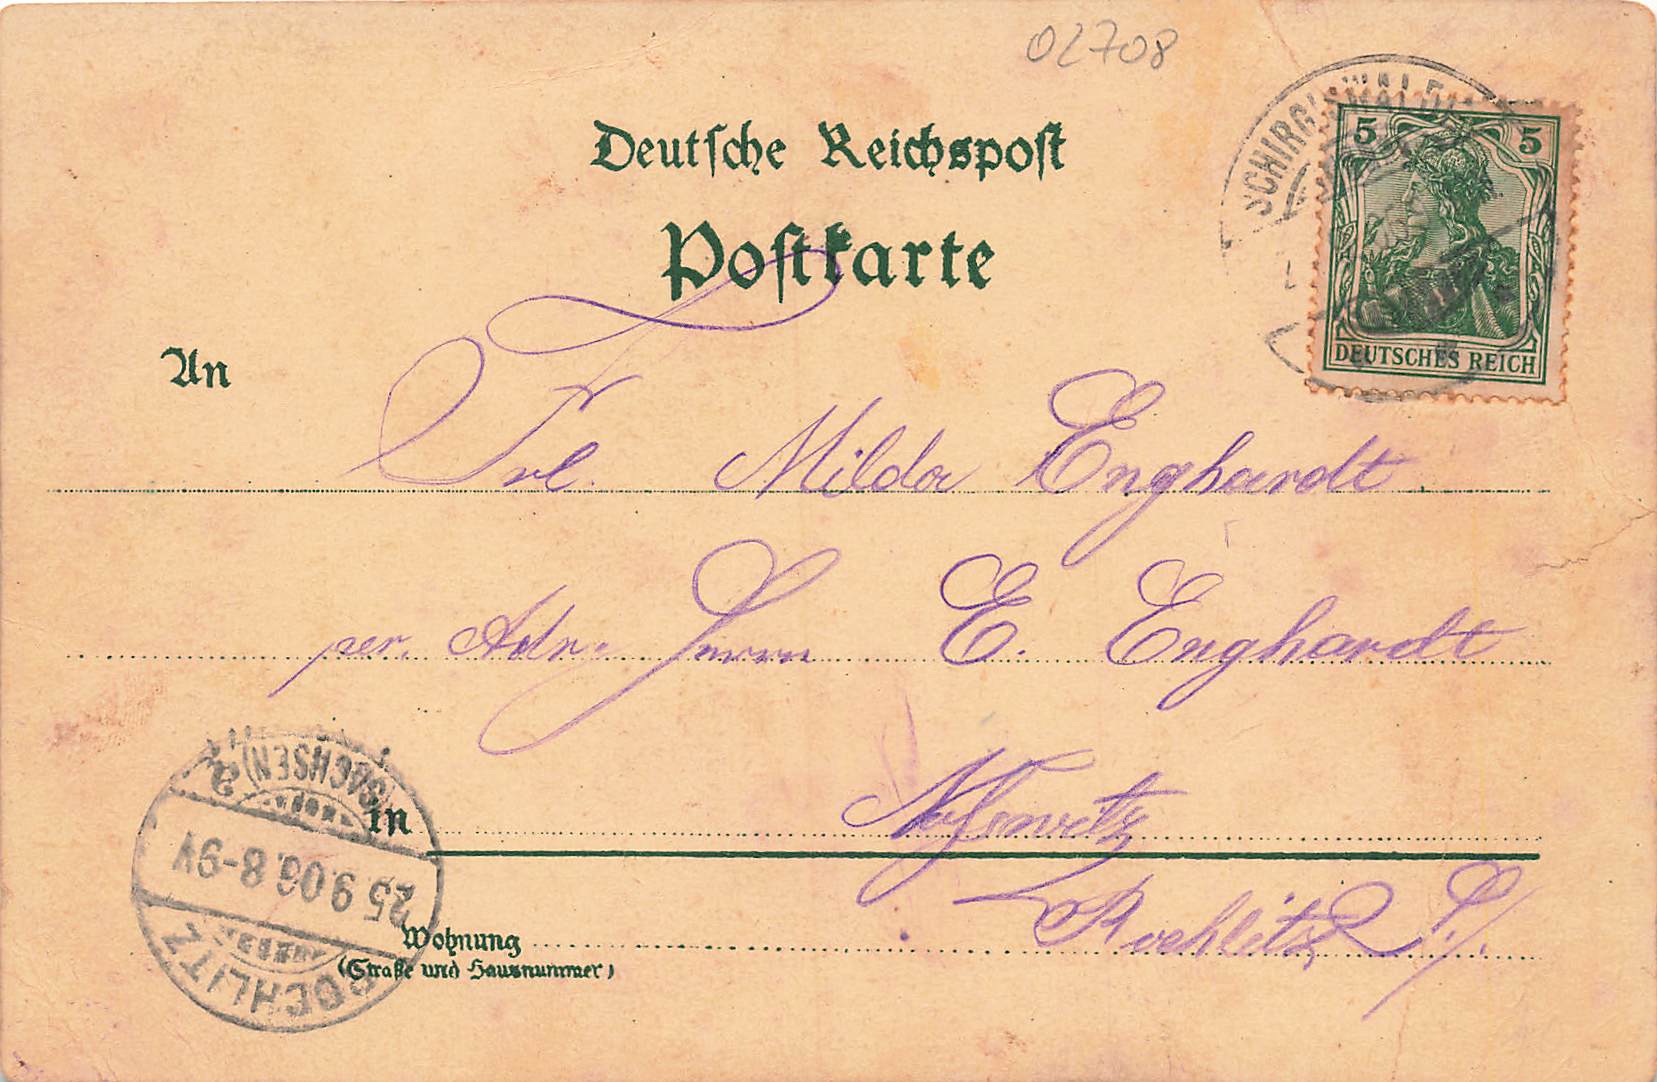 02708
Deutsche Reichspost
Postkarte
SCHIRGISWALDE
5 5
DEUTSCHES REICH
An
Frl. Milda Enghardt
per. Adr. Herrn E. Enghardt
in
Rochlitz i/S.
Wohnung
(Straße und Hausnummer)
ROCHLITZ
25.9.06.8-9V
(SACHSEN) 2